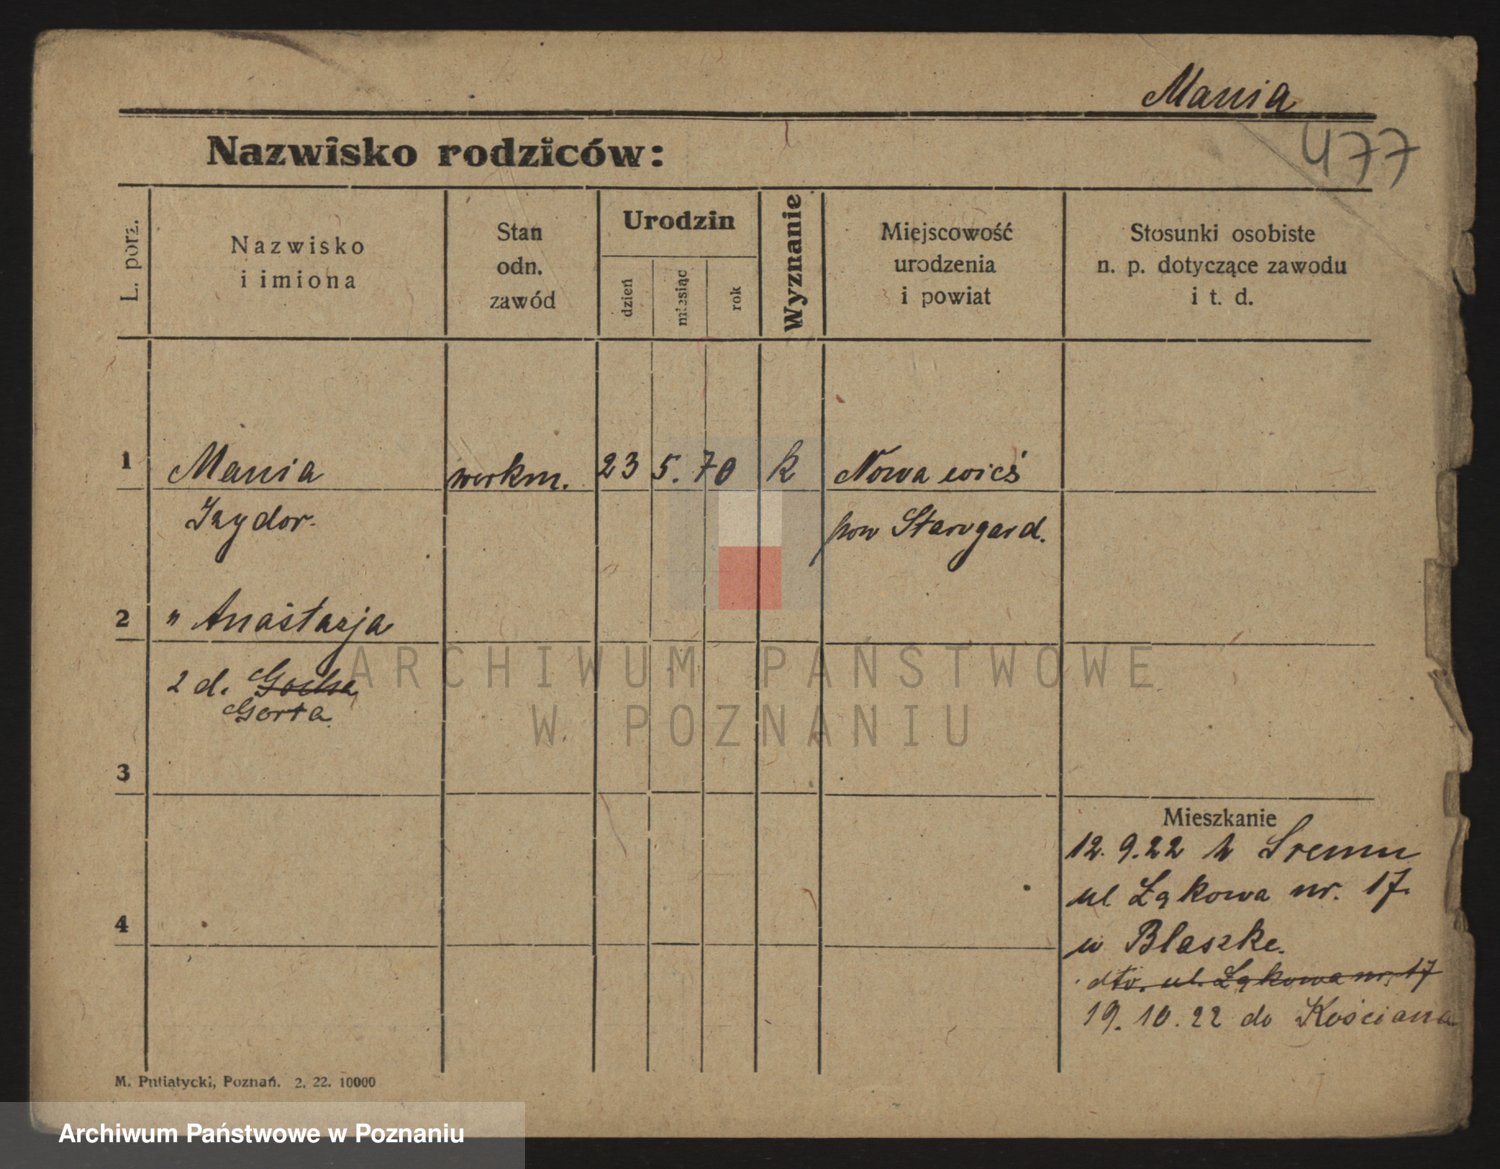 Mania
477
Nazwisko rodziców:
L. porz.
Nazwisko
i imiona
Stan
odn.
zawód
Urodzin
dzień
miesiąc
rok
Wyznanie
Miejscowość
urodzenia
i powiat
Stosunki osobiste
n. p. dotyczące zawodu
i t. d.
1 Mania werkm. 23 5. 70 k Nowa wieś
Izydor. pow Starogard.
2 " Anastazja
2 d. Gocha
Gorta
ARCHIWUM PAŃSTWOWE
W POZNANIU
3
Mieszkanie
12. 9. 22 z Śremu
ul Łąkowa nr. 17.
4
w Blaszke.
dto. ul. Łąkowa nr. 17
19. 10. 22 do Kościana
M. Putiatycki, Poznań. 2. 22. 10000
Archiwum Państwowe w Poznaniu